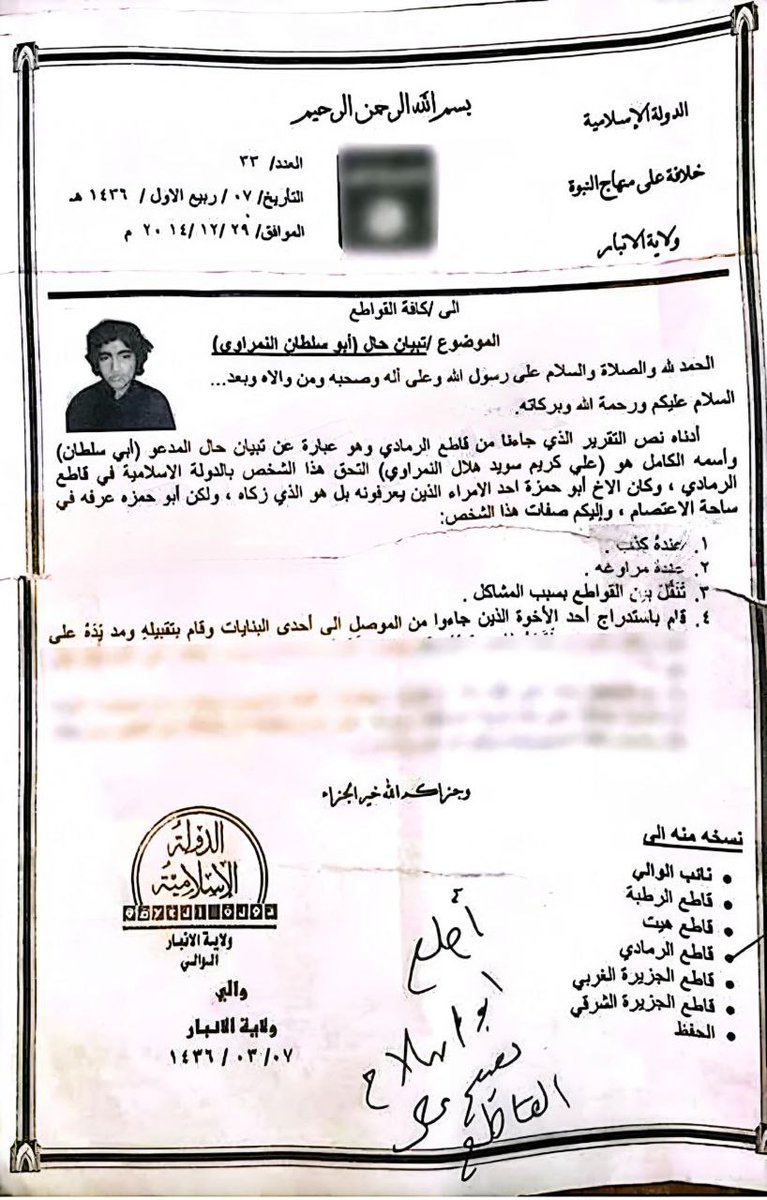 بسم الله الرحمن الرحيم
الدولة الإسلامية
خلافة على منهاج النبوة
ولاية الانبار
العدد/ ٣٣
التاريخ/ ٠٧ / ربيع الاول / ١٤٣٦ هـ
الموافق/ ٢٩ /١٢/ ٢٠١٤ م
الى /كافة القواطع
الموضوع /تبيان حال (أبو سلطان النمراوي)
الحمد لله والصلاة والسلام على رسول الله وعلى أله وصحبه ومن والاه وبعد...
السلام عليكم ورحمة الله وبركاته.
أدناه نص التقرير الذي جاءنا من قاطع الرمادي وهو عبارة عن تبيان حال المدعو (أبي سلطان)
وأسمه الكامل هو (علي كريم سويد هلال النمراوي) التحق هذا الشخص بالدولة الاسلامية في قاطع
الرمادي ، وكان الاخ أبو حمزة احد الامراء الذين يعرفونه بل هو الذي زكاه ، ولكن أبو حمزه عرفه في
ساحة الاعتصام ، وإليكم صفات هذا الشخص:
١. عندهُ كذب .
٢. عندهُ مراوغه .
٣. تُنَقَّل بين القواطع بسبب المشاكل .
٤. قام باستدراج أحد الأخوة الذين جاءوا من الموصل الى أحدى البنايات وقام بتقبيله ومد يَدَهُ على
وجزاكم الله خير الجزاء
نسخه منه الى
نائب الوالي
قاطع الرطبة
قاطع هيت
قاطع الرمادي
قاطع الجزيرة الغربي
قاطع الجزيرة الشرقي
الحفظ
الدولة
الإسلامية
ولاية الانبار
الوالي
والي
ولاية الانبار
١٤٣٦ / ٠٣ / ٠٧